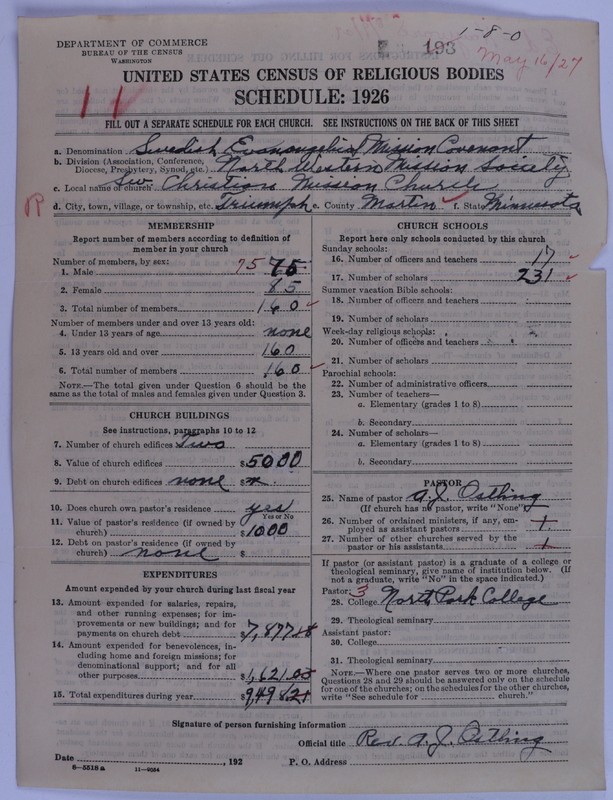 1-8-0
193
May 16/27
DEPARTMENT OF COMMERCE
BUREAU OF THE CENSUS
WASHINGTON
UNITED STATES CENSUS OF RELIGIOUS BODIES
SCHEDULE: 1926
11
FILL OUT A SEPARATE SCHEDULE FOR EACH CHURCH. SEE INSTRUCTIONS ON THE BACK OF THIS SHEET
a. Denomination Swedish Evanangelical Mission Covenant
b. Division (Association, Conference, Diocese, Presbytery, Synod, etc.) North Western Mission Society
c. Local name of church Sw Christian Mission Church
R
d. City, town, village, or township, etc. Triumph e. County Martin f. State Minnesota
MEMBERSHIP
Report number of members according to definition of
member in your church
Number of members, by sex:
1. Male 75 75
2. Female 85
3. Total number of members 160
Number of members under and over 13 years old:
4. Under 13 years of age none
5. 13 years old and over 160
6. Total number of members 160
NOTE.—The total given under Question 6 should be
same as the total of males and females given under Question 3.
CHURCH BUILDINGS
See instructions, paragraphs 10 to 12
7. Number of church edifices Two
8. Value of church edifices $5000
9. Debt on church edifices none $x
10. Does church own pastor's residence yes
Yes or No
11. Value of pastor's residence (if owned by
church) $1000
12. Debt on pastor's residence (if owned by
church) none $
EXPENDITURES
Amount expended by your church during last fiscal year
13. Amount expended for salaries, repairs,
and other running expenses; for im-
provements or new buildings; and for
payments on church debt $
14. Amount expended for benevolences, in-
cluding home and foreign missions; for
denominational support; and for all
other purposes $
15. Total expenditures during year $
CHURCH SCHOOLS
Report here only schools conducted by this church
Sunday schools:
16. Number of officers and teachers 17
17. Number of scholars 231
Summer vacation Bible schools:
18. Number of officers and teachers
19. Number of scholars
Week-day religious schools:
20. Number of officers and teachers
21. Number of scholars
Parochial schools:
22. Number of administrative officers
23. Number of teachers—
a. Elementary (grades 1 to 8)
b. Secondary
24. Number of scholars—
a. Elementary (grades 1 to 8)
b. Secondary
PASTOR
25. Name of pastor A. J. Ostling
(If church has no pastor, write "None")
26. Number of ordained ministers, if any, em-
ployed as assistant pastors
27. Number of other churches served by the
pastor or his assistants
If pastor (or assistant pastor) is a graduate of a college or
theological seminary, give name of institution below. (If
not a graduate, write "No" in the space indicated.)
Pastor: 3
28. College North Park College
29. Theological seminary
Assistant pastor:
30. College
31. Theological seminary
NOTE.—Where one pastor serves two or more churches,
Questions 28 and 29 should be answered only on the schedule
for one of the churches; on the schedules for the other churches,
write "See schedule for church."
Signature of person furnishing information
Official title Rev. A. J. Ostling
Date , 192 P. O. Address
8—5518 a 11—9034